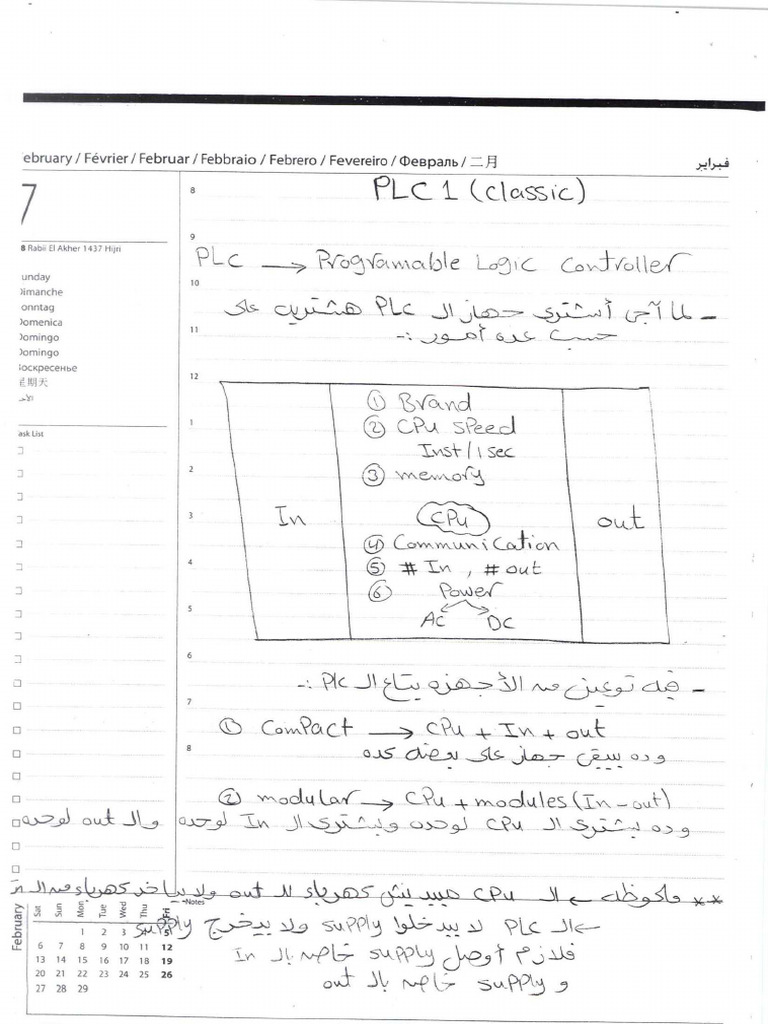 ebruary / Février / Februar / Febbraio / Febrero / Fevereiro / Февраль / 二月
فبراير
7
8 Rabii El Akher 1437 Hijri
unday
Dimanche
onntag
Domenica
Domingo
Domingo
Воскресенье
星期天
الأحد
ask List
8
PLC 1 (classic)
9
PLC → Programable Logic Controller
10
- لما آجى أشترى جهاز الـ PLC هشتريه على
11
حسب عده أمور :-
12
① Brand
1
② CPU Speed
Inst / 1 sec
2
③ memory
3
In
CPU
out
④ Communication
4
⑤ # In , # out
⑥ Power
5
AC DC
6
- فيه نوعين من الأجهزه بتاع الـ Plc :-
7
① Compact → CPU + In + out
8
وده بيبقى جهاز على بعضه كده
② modular → CPU + modules (In - out)
وده بشترى الـ CPU لوحده وبشترى الـ In لوحده والـ out لوحده
** ملحوظه ← الـ CPU مبيديش كهرباء للـ out ولا بياخد كهرباء من الـ In
Notes
← الـ PLC لا بيدخلوا supply ولا بيخرج supply
فلازم أوصل supply خاص بالـ In
و supply خاص بالـ out
February
Sat Sun Mon Tue Wed Thu Fri
1 2 3 4 5
6 7 8 9 10 11 12
13 14 15 16 17 18 19
20 21 22 23 24 25 26
27 28 29